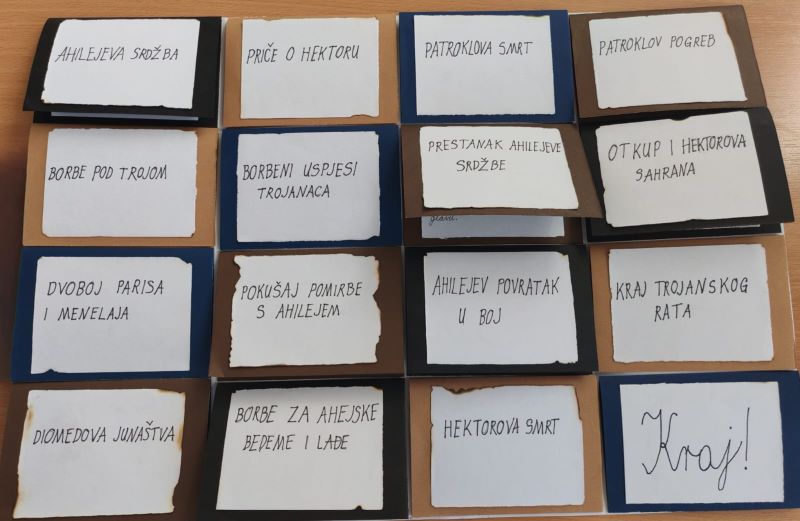 AHILEJEVA SRDŽBA
PRIČE O HEKTORU
PATROKLOVA SMRT
PATROKLOV POGREB
BORBE POD TROJOM
BORBENI USPJESI
TROJANACA
PRESTANAK AHILEJEVE
SRDŽBE
glavu.
OTKUP I HEKTOROVA
SAHRANA
DVOBOJ PARISA
I MENELAJA
POKUŠAJ POMIRBE
S AHILEJEM
AHILEJEV POVRATAK
U BOJ
KRAJ TROJANSKOG
RATA
DIOMEDOVA JUNAŠTVA
BORBE ZA AHEJSKE
BEDEME I LAĐE
HEKTOROVA SMRT
Kraj!